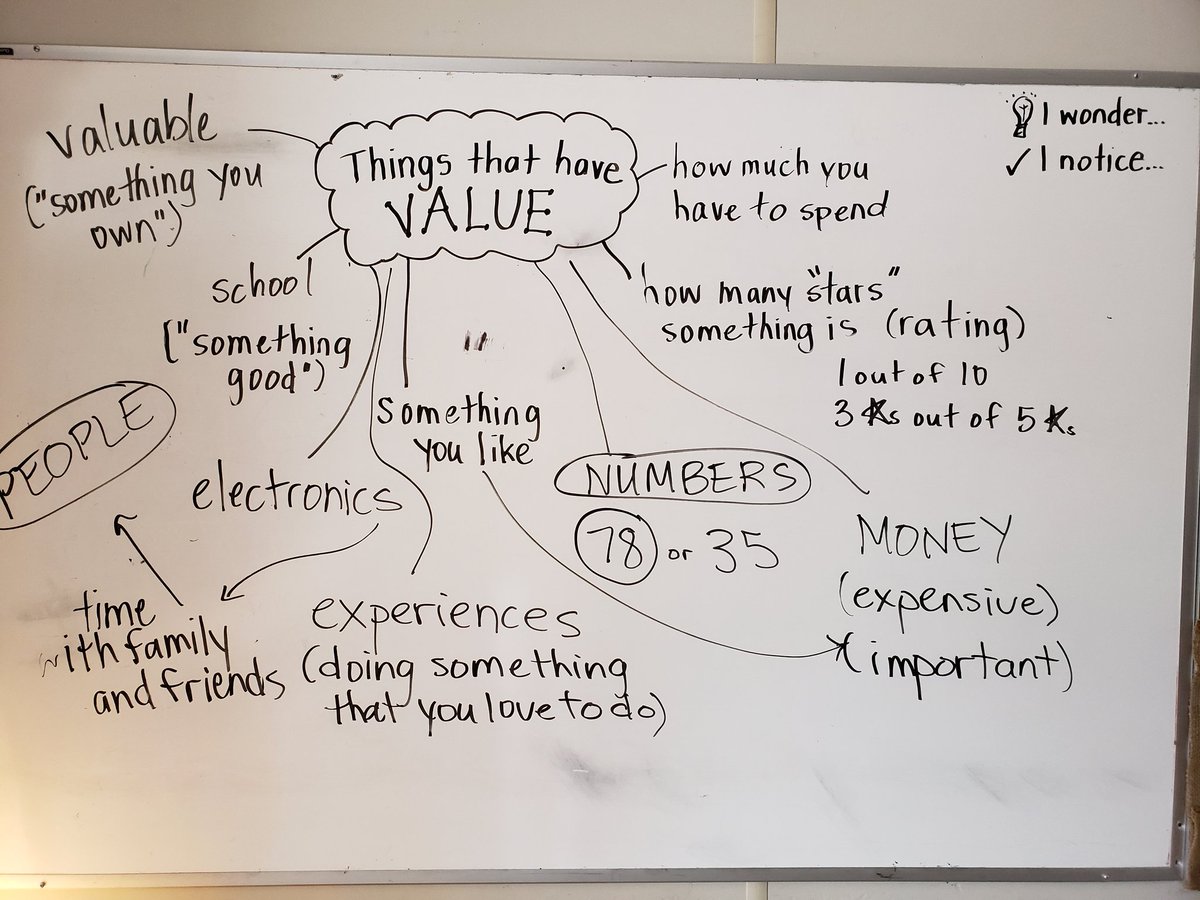 valuable
("something you
own")
Things that have
VALUE
how much you
have to spend
I wonder...
✓ I notice...
school
("something
good")
how many "stars"
something is (rating)
1 out of 10
3 ★s out of 5 ★s
PEOPLE
electronics
something
you like
NUMBERS
78 or 35
MONEY
(expensive)
(important)
time
with family
and friends
experiences
(doing something
that you love to do)